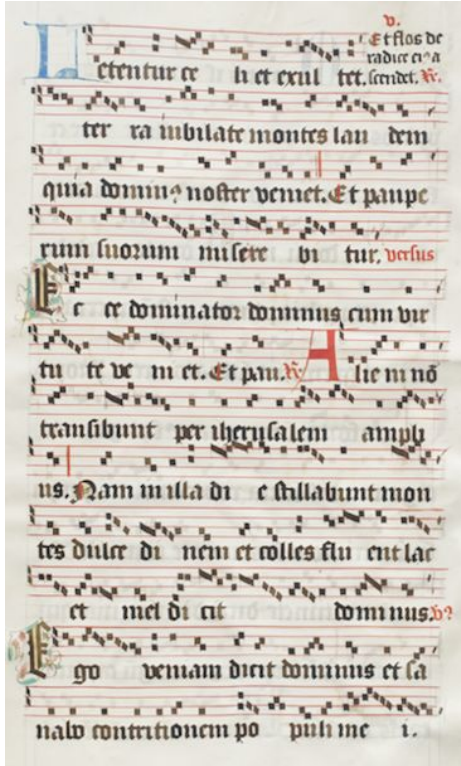 v.
Et flos de
radice eiꝰ a
Letentur ce li et exul tet. scendet. R.
ter ra iubilate montes lau dem
quia dominꝰ noster veniet. Et paupe
rum suorum misere bi tur. versus
Ec ce dominator dominus cum vir
tu te ve ni et. Et pau. R. Alieni nō
transibunt per iherusalem ampli
us. Nam in illa di e stillabunt mon
tes dulce di nem et colles flu ent lac
et mel di cit dominus.
Ego veniam dicit dominus et sa
nabo contritionem po puli me i.